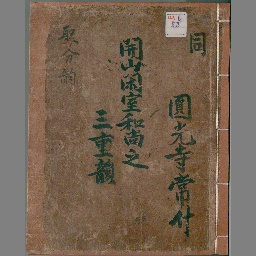 同
圓光寺常什
開山閑室和尚之
三重韻
聚分韻